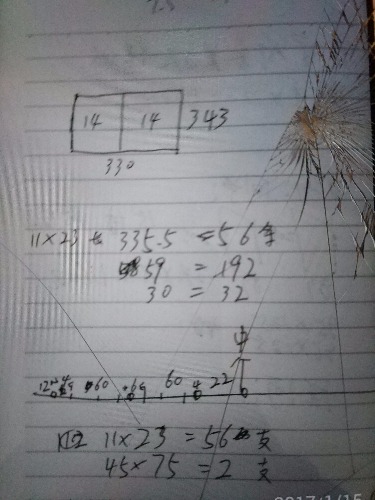 14 14 343
330
11×23 335.5 = 56
59 = 192
30 = 32
60 69 60 4 22
11×23 = 56 支
45×75 = 2 支
2017/1/15